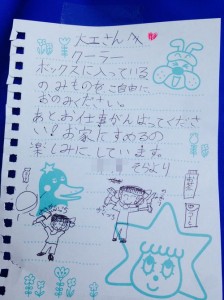 大工さんへ
クーラー
ボックスに入っている
のみものをご自由に
おのみください。
あとお仕事がんばってくださ
い!お家にすめるの
楽しみにしています。
そらより